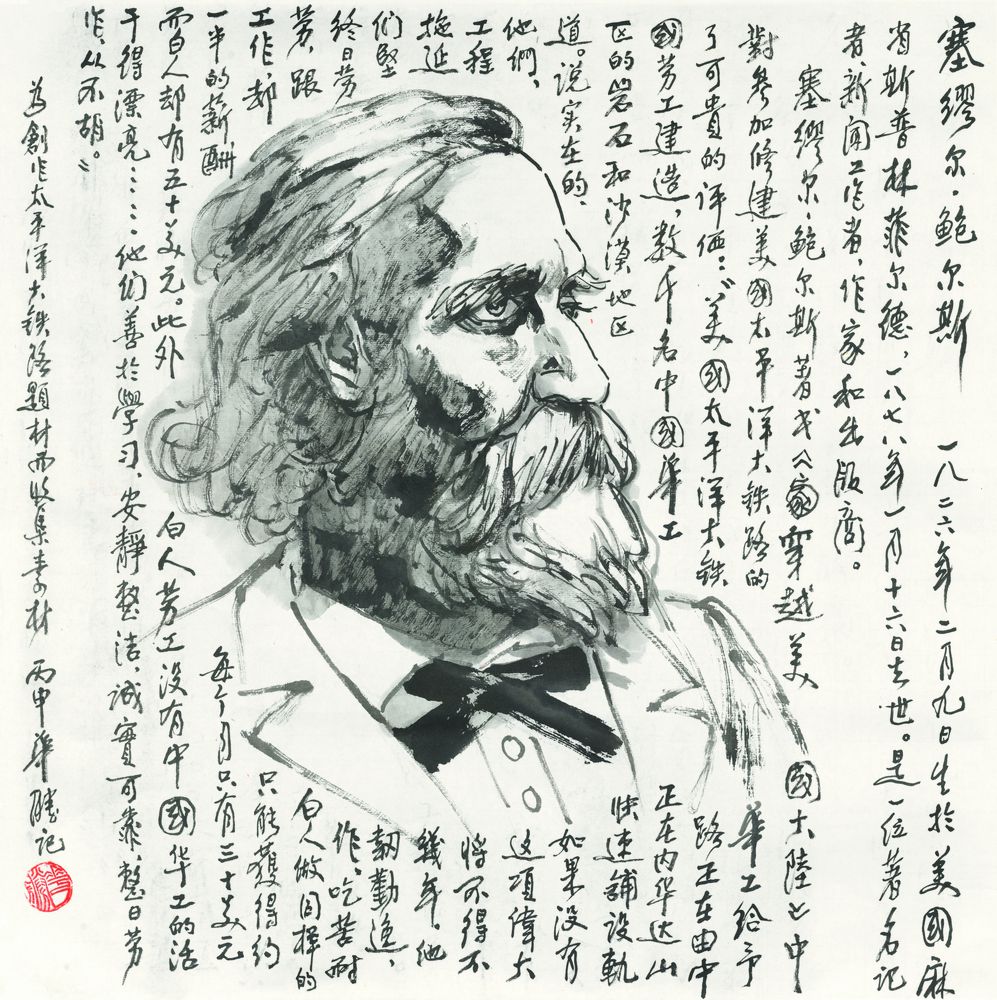 塞缪尔·鲍尔斯 一八二六年二月九日生於美國麻
省斯普林菲尔德,一八七八年一月十六日去世。是一位著名记
者、新闻工作者、作家和出版商。
塞缪尔·鲍尔斯著《穿越美國大陸》中
對参加修建美國太平洋大铁路的華工给予
了可貴的评価:“美國太平洋大铁路正在由中
國劳工建造,数千名中國華工正在内华达山
区的岩石和沙漠地区快速铺设軌
道。说实在的、如果没有
他們,这項偉大
工程将不得不
拖延幾年。他
们堅韌勤逸、
终日劳作、吃苦耐
劳,跟白人做同样的
工作,却只能獲得约
一半的薪酬,每个月只有三十美元
而白人却有五十美元。此外白人劳工没有中國华工的活
干得漂亮……他们善於學习、安靜整洁、诚實可靠、整日劳
作、从不胡。”
为創作太平洋大铁路題材而收集素材 丙申 華勝记